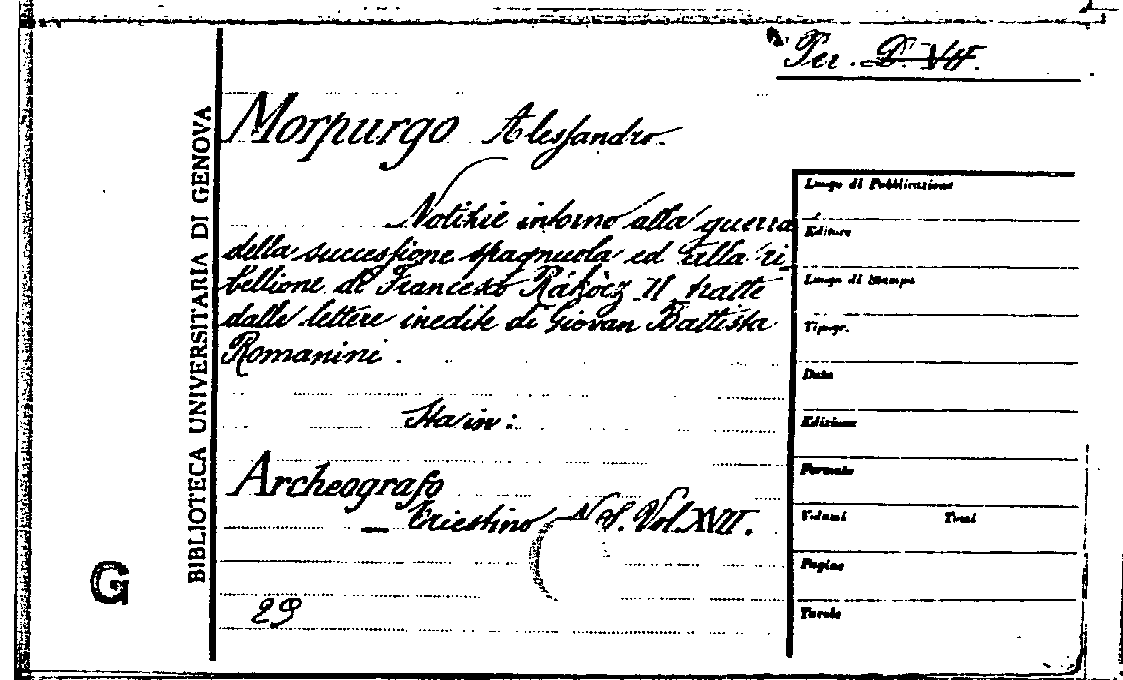 Per. D. VII.
Morpurgo Alessandro.
Notizie intorno alla guerra
della successione spagnuola ed alla ri
bellione di Francesco Rákòcz II tratte
dalle lettere inedite di Giovan Battista
Romanini.
Sta in:
Archeografo
Triestino N. S. Vol. XVII.
29
G
BIBLIOTECA UNIVERSITARIA DI GENOVA
Luogo di Pubblicazione
Editore
Luogo di Stampa
Tipogr.
Data
Edizione
Formato
Volumi Tomi
Pagine
Tavole